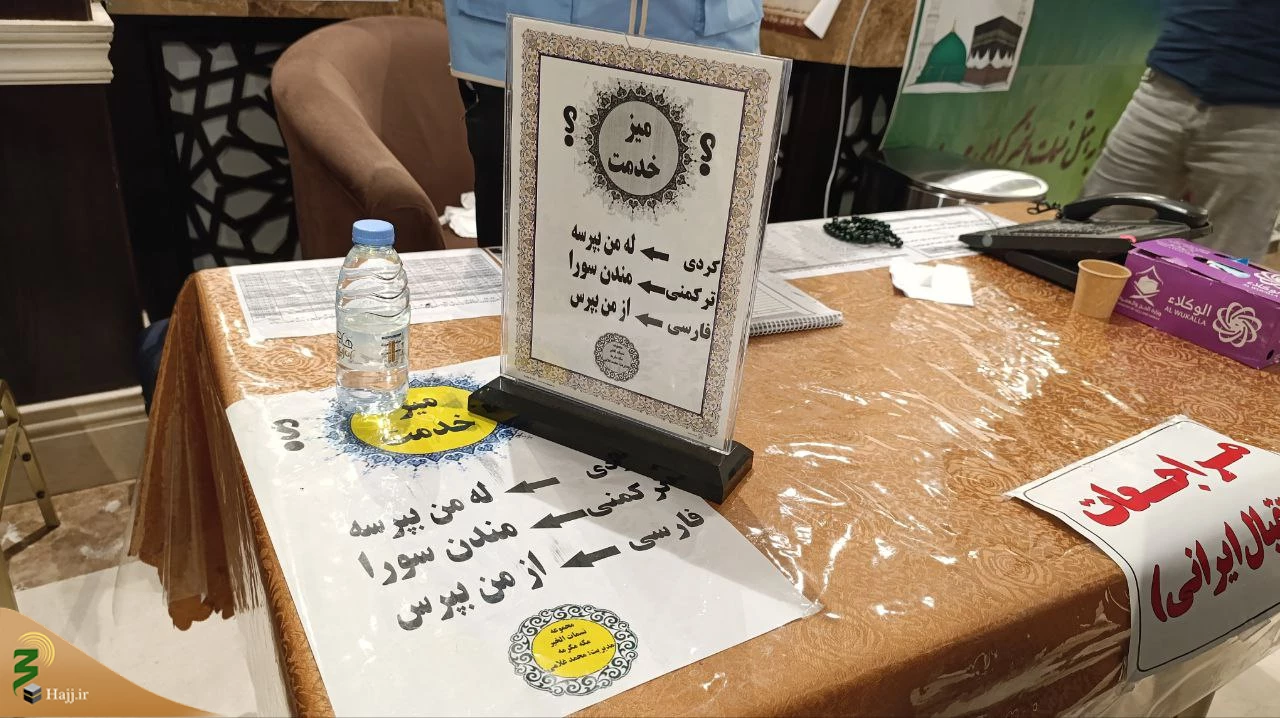 میز
خدمت
؟
؟
کردی ← له من بپرسه
ترکمنی ← مندن سورا
فارسی ← از من بپرس
میز
خدمت
؟
له من بپرسه
ترکمنی ← مندن سورا
فارسی ← از من بپرس
مجموعه
نسمات الخیر
مکه مکرمه
مدیریت: محمد غلامی
الوكلاء
AL WUKALLA
مراجعات
ایرانی)
Hajj.ir